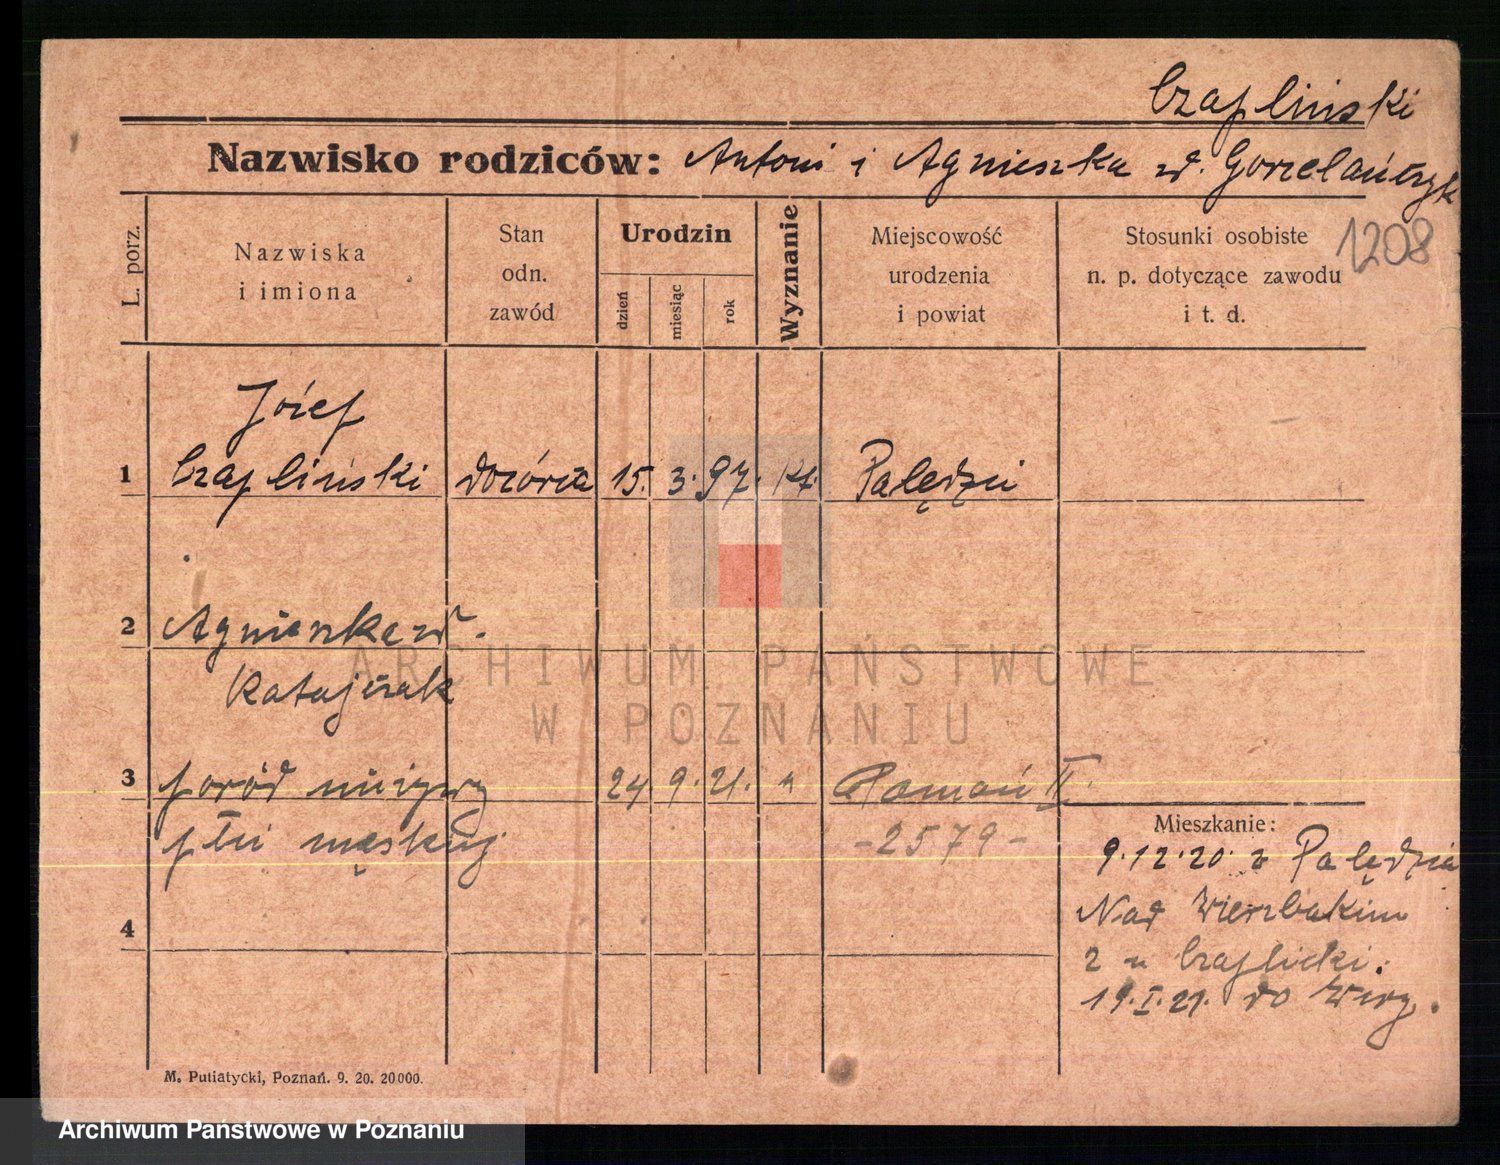 Czapliński
Nazwisko rodziców: Antoni i Agnieszka zd. Gorzelańczyk
1208
L. porz.
Nazwiska
i imiona
Stan
odn.
zawód
Urodzin
dzień
miesiąc
rok
Wyznanie
Miejscowość
urodzenia
i powiat
Stosunki osobiste
n. p. dotyczące zawodu
i t. d.
Józef
1 Czapliński dozórca 15. 3. 97. kt. Palędzie
2 Agnieszka zd.
Katajczak
3 poród nieżywy 24 9. 21. " Poznań II.
płci męskiej -2579-
4
Mieszkanie:
9.12.20. z Palędzia
Nad Wierzbakiem
2 u Czaplicki.
19.I.21. do Wiry.
M. Putiatycki, Poznań. 9. 20. 20000.
ARCHIWUM PAŃSTWOWE
W POZNANIU
Archiwum Państwowe w Poznaniu